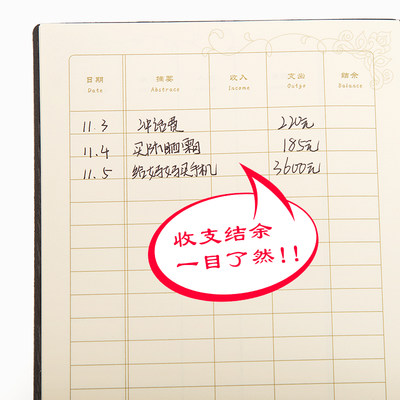 日期 摘要 收入 支出 结余
Date Abstract Income Outgo Balance
11.3 冲话费 220元
11.4 买防晒霜 185元
11.5 给 买手机 3600元
收支结余
一目了然!!